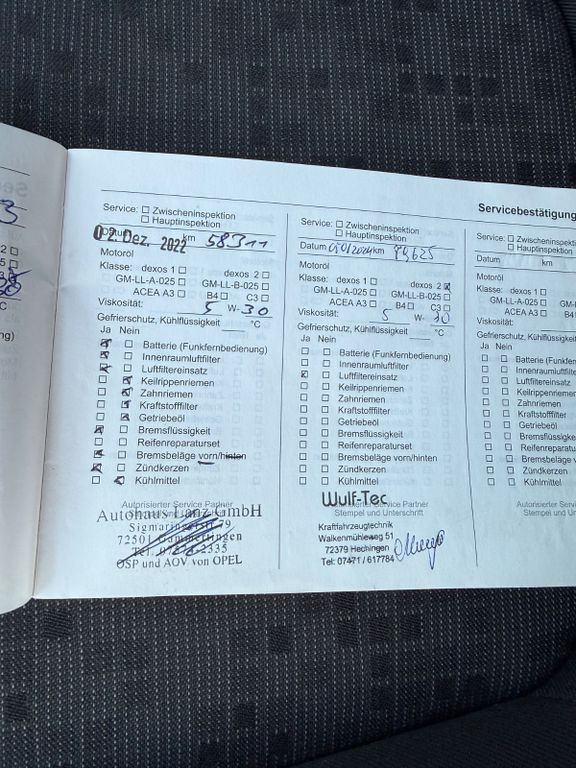 Servicebestätigung
Service: Zwischeninspektion
Hauptinspektion
Datum 02. Dez. 2022 km 58311
Motoröl
Klasse: dexos 1 dexos 2
GM-LL-A-025 GM-LL-B-025
ACEA A3 B4 C3
Viskosität: 5 W-30
Gefrierschutz, Kühlflüssigkeit °C
Ja Nein
Batterie (Funkfernbedienung)
Innenraumluftfilter
Luftfiltereinsatz
Keilrippenriemen
Zahnriemen
Kraftstofffilter
Getriebeöl
Bremsflüssigkeit
Reifenreparaturset
Bremsbeläge vorn/hinten
Zündkerzen
Kühlmittel
Autorisierter Service Partner
Autohaus Lanz GmbH
72501 Gammertingen
OSP und AOV von OPEL
Service: Zwischeninspektion
Hauptinspektion
Datum km
Motoröl
Klasse: dexos 1 dexos 2
GM-LL-A-025 GM-LL-B-025
ACEA A3 B4 C3
Viskosität: 5 W-30
Gefrierschutz, Kühlflüssigkeit °C
Ja Nein
Batterie (Funkfernbedienung)
Innenraumluftfilter
Luftfiltereinsatz
Keilrippenriemen
Zahnriemen
Kraftstofffilter
Getriebeöl
Bremsflüssigkeit
Reifenreparaturset
Bremsbeläge vorn/hinten
Zündkerzen
Kühlmittel
Autorisierter Service Partner
Stempel und Unterschrift
Wulf-Tec
Kraftfahrzeugtechnik
Walkenmühleweg 51
72379 Hechingen
Tel: 07471 / 617784
Service: Zwischeninspektion
Hauptinspektion
Datum km
Motoröl
Klasse: dexos 1
GM-LL-A-025
ACEA A3
Viskosität:
Gefrierschutz, Kühlflüssigkeit
Ja Nein
Batterie (Funkfernbedienung)
Innenraumluftfilter
Luftfiltereinsatz
Keilrippenriemen
Zahnriemen
Kraftstofffilter
Getriebeöl
Bremsflüssigkeit
Reifenreparaturset
Bremsbeläge vorn
Zündkerzen
Kühlmittel
Autorisierter Service
Stempel und Unterschrift